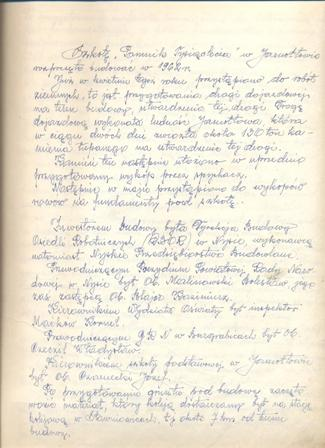 Szkołę, Pomnik Tysiąclecia w Jarnołtowie
rozpoczęto budować w 1962 r.
Już w kwietniu tego roku przystąpiono do robót
ziemnych, to jest przygotowania drogi dojazdowej
na teren budowy, utwardzenia tej drogi. Drogę
dojazdową wykonała ludność Jarnołtowa, która
w ciągu dwóch dni zwiozła około 150 ton ka-
mienia na utwardzenie tej drogi.
Kamień ten następnie ułożono w uprzednio
przygotowany wykop przez spychacz.
Następnie w maju przystąpiono do wykopów
rowów na fundamenty pod szkołę.
Inwestorem budowy była Dyrekcja Budowy
Osiedli Robotniczych (DBOR) w Nysie, wykonawcą
natomiast Nyskie Przedsiębiorstwo Budowlane.
Przewodniczącym Prezydium Powiatowej Rady Naro-
dowej w Nysie był Ob. Malinowski Bolesław jego
zaś zastępcą Ob. Kazimierz.
Kierownikiem Wydziału Oświaty był inspektor
Kornel.
Przewodniczącym GRN w był Ob.
Władysław.
Kierownikiem szkoły podstawowej w Jarnołtowie
był Ob. Józef.
Po przygotowaniu gruntu pod budowę zaczęto
wozić materiał, który koleją dostarczany był na stację
kolejową w, tj około 7 km od terenu
budowy.